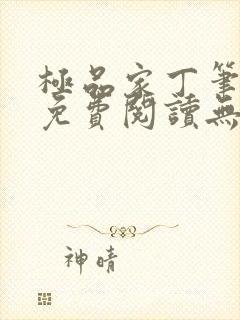 極品家丁筆
免費閱讀無
神晴